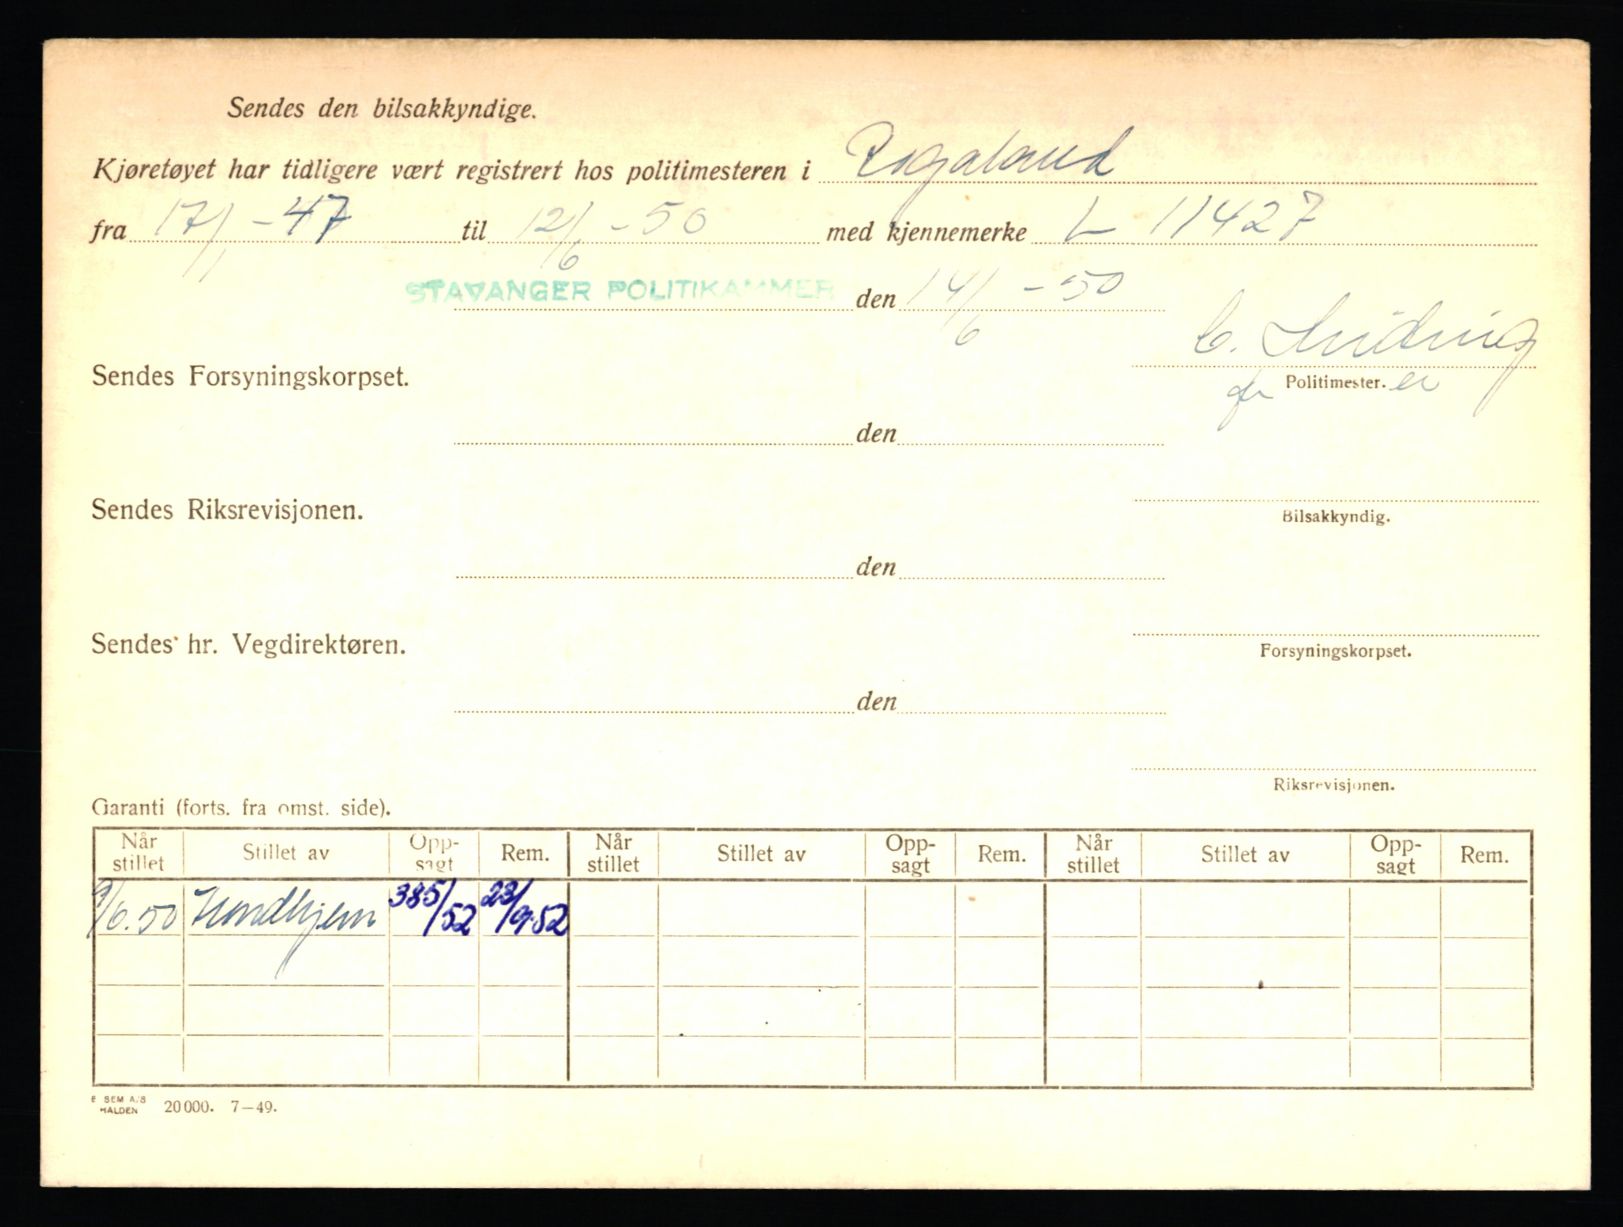 Sendes den bilsakkyndige.
Kjøretøyet har tidligere vært registrert hos politimesteren i Rogaland
fra 17/1 - 47 til 12/6 - 50 med kjennemerke L 11427
STAVANGER POLITIKAMMER den 14/6 - 50
Sendes Forsyningskorpset.
Politimester.
den
Sendes Riksrevisjonen.
Bilsakkyndig.
den
Sendes hr. Vegdirektøren.
Forsyningskorpset.
den
Riksrevisjonen.
Garanti (forts. fra omst. side).
Når stillet Stillet av Opp-sagt Rem. Når stillet Stillet av Opp-sagt Rem. Når stillet Stillet av Opp-sagt Rem.
9/6.50 385/52 23/9.52
E SEM A/S
HALDEN 20000. 7—49.